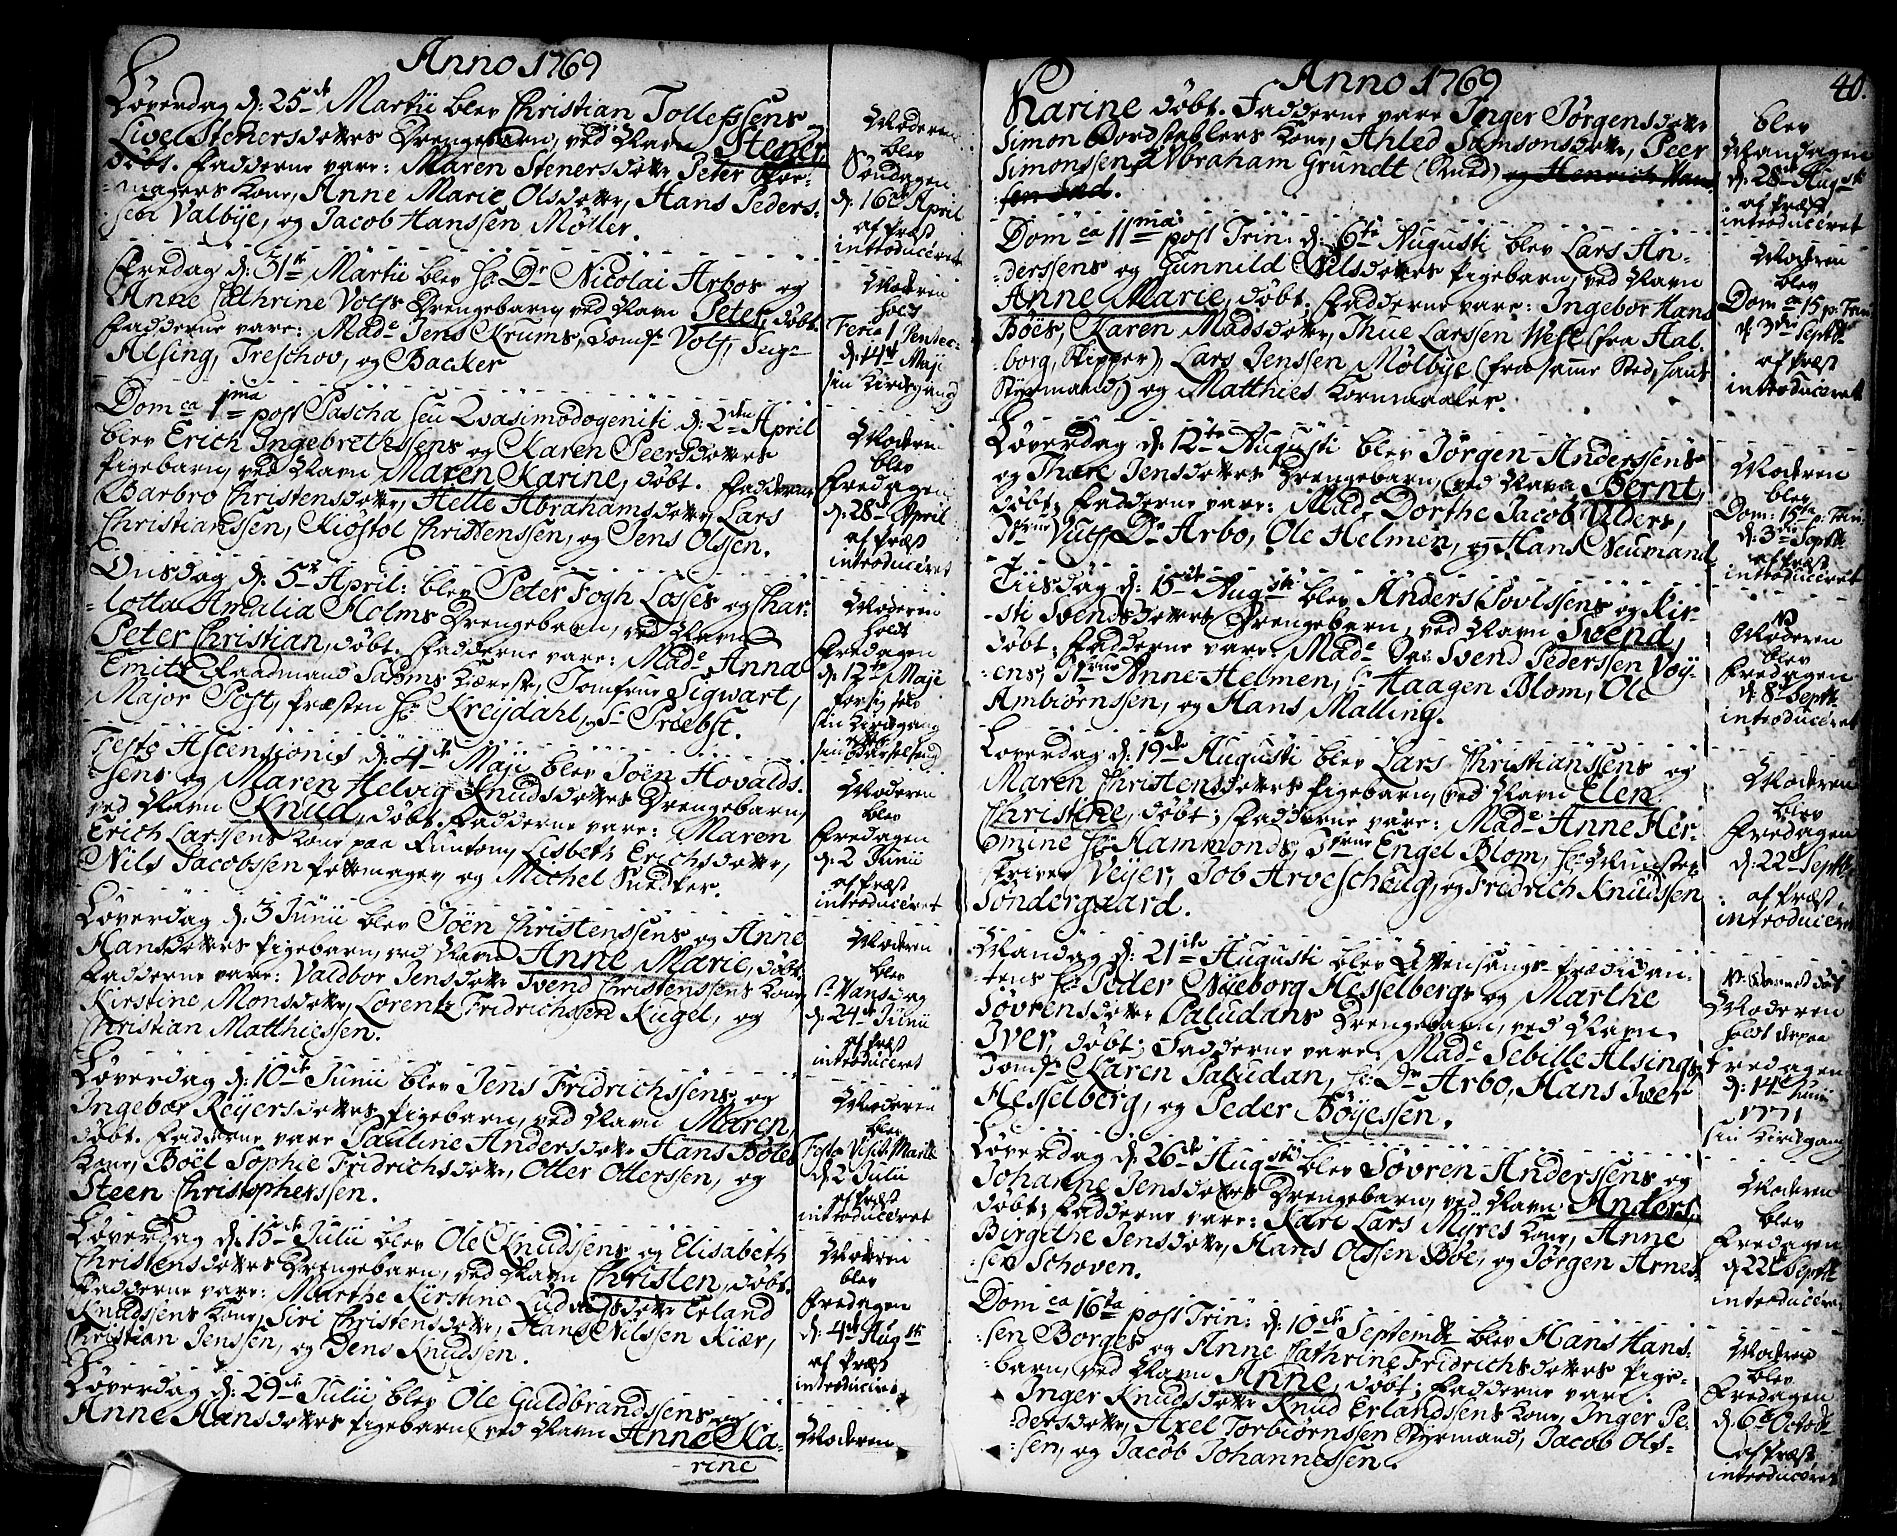 Anno 1769
Løverdag d: 25de Martii blev Christian Tollefssens og
Livel Stenersdotters Drengebarn, ved Navn Stener,
døbt. Fadderne vare: Maren Stenersdotter Peter Skoe-
magers Kone, Anne Marie Olsdotter, Hans Peders-
sen Valbye, og Jacob Hanssen Møller.
Moderen
blev
Søndagen
d: 16de April
af Præst
introduceret
Fredag d: 31te Martii blev Hr Dr Nicolai Arbos og
Anne Cathrine Volfs Drengebarn, ved Navn Peter, døbt.
Fadderne vare: Made Jens Krums, Jomfr Volf,
Alsing, Treschov, og Backer
Moderen
holdt
Feria 1 Pentec:
d: 14de Maji
sin Kirkegang
Dom ca 1ma post Pascha seu Qvasimodogeniti d: 2den April
blev Erich Ingebrethssens og Karen Peersdotters
Pigebarn, ved Navn Maren Karine, døbt. Fadderne
Barbro Christensdotter, Helle Abrahamsdotter, Lars
Christianssen, Kiøstol Christenssen, og Jens Olssen.
Moderen
blev
Fredagen
d: 28de April
af Præst
introduceret
Onsdag d: 5te April: blev Peter Fogh Losses og Char-
lotta Amalia Holms Drengebarn, ved Navn
Peter Christian, døbt. Fadderne vare: Made Anna
Emitz Raadmand Sahms Kiæreste, Jomfrue Sigwart,
Major Post, Præsten Hr Kreydahl, Sr Priebst.
Moderen
holdt
Fredagen
d: 12te Maji
for sig selv
sin Kirkegang
Festo Ascensionis d: 4de Maji blev Joen Hovalds-
sens og Maren Helvig Knudsdotters Drengebarn,
ved Navn Knud, døbt. Fadderne vare: Maren
Erich Larssens Kone paa Funtom, Lisbeth Erichsdotter,
Nils Jacobssen Pottemager, og Michel Snedker.
Moderen
blev
Fredagen
d: 2 Junii
af Præst
introduceret
Løverdag d: 3 Junii blev Joen Christenssens og Anne
Hansdotters Pigebarn, ved Navn Anne Marie, døbt.
Fadderne vare: Valdbor Jensdotter Svend Christenssens Kone,
Kirstine Monsdotter, Lorentz Fridrichssen Kugel, og
Christian Matthiessen.
Moderen
blev
St Hansdag
d: 24de Junii
af Præst
introduceret
Løverdag d: 10de Junii blev Jens Fridrichssens og
Ingebor Reyersdotters Pigebarn, ved Navn Maren,
døbt. Fadderne vare Pauline Andersdotter Hans Boles
Kone, Boël Sophie Fridrichsdotter, Otter Otterssen, og
Steen Christopherssen.
Moderen
blev
Festo Visit: Mariæ
d: 2 Julii
af Præst
introduceret
Løverdag d: 15de Julii blev Ole Knudssens og Elisabeth
Christensdotters Drengebarn, ved Navn Christen, døbt.
Fadderne vare: Marthe Kirstine Ludvigsdotter Erland
Knudssens Kone, Siri Christensdotter, Hans Nilssen Kiær,
Christian Jenssen, og Jens Knudssen.
Moderen
blev
Fredagen
d: 4de Aug sti
af Præst
introduceret
Løverdag d: 29de Julii blev Ole Guldbrandssens og
Anne Hansdotters Pigebarn, ved Navn Anne Ka-
rine
Moderen
Anno 1769
40.
Karine døbt. Fadderne vare Inger Jørgensdotter
Simon Bordstablers Kone, Ahled Samsonsdotter, Peer
Simonssen, Abraham Grundt (Knud) og Henrich Hans
sen
blev
Mandagen
d: 28de Aug sti
af Præst
introduceret
Dom ca 11ma post Trin: d: 6te Augusti blev Lars An-
derssens og Gunnild Nilsdotters Pigebarn, ved Navn
Anne Marie, døbt; Fadderne vare: Ingebor Hans
Böes, Karen Madsdotter, Thue Larssen West (fra Aal-
borg, Skipper), Lars Jenssen Mølbye (fra samme Sted, hans
Styrmand,) og Matthies Kornmaaler.
Moderen
blev
Dom ca 15 p. Trin:
d: 3die Septbr
af Præst
introduceret
Løverdag d: 12te Augusti blev Jørgen Anderssens
og Thare Jensdotters Drengebarn, ved Navn Bernt,
døbt; Fadderne vare: Made Dorthe Jacob Elders,
Dr Arbo, Ole Helmen, og Hans Neumand
Moderen
blev
Dom: 15ta p. Trin:
d: 3die Septbr
af Præst
introduceret
Tiisdag d: 15de Aug sti blev Anders Povlssens og Kir-
sti Svendsdotters Drengebarn, ved Navn Svend,
døbt; Fadderne vare Made Svend Pederssen Voy-
ens, Anne Helmen, Sr Haagen Blom, Ole
Ambiørnssen, og Hans Malling.
Moderen
blev
Fredagen
d: 8de Septbr
introduceret
Løverdag d: 19de Augusti blev Lars Christianssens og
Maren Christensdotters Pigebarn, ved Navn Elen
Christine, døbt; Fadderne vare: Made Anne Her-
mine Hr Hammonds, Engel Blom, Hr Munster-
skriver Veyer, Job Arveschoug, og Fredrich Knudssen
Søndergaard.
Moderen
blev
Fredagen
d: 22de Septbr
af Præst
introduceret
Mandag d: 21de Augusti blev Aftensangs-Prædican-
tens Hr Peder Nyeborg Hesselbergs og Marthe
Søvrensdotter Paludans Drengebarn, ved Navn
Iver, døbt; Fadderne vare: Made Sebille Alsings,
Jomfr Karen Paludan, Hr Dr Arbo, Hans Iver
Hesselberg, og Peder Böyessen.
Moderen
holdt
Fredagen
d: 14de Junii
1771
sin Kirkegang
Løverdag d: 26de Aug sti blev Søvren Anderssens og
Johanne Jensdotters Drengebarn, ved Navn Anders,
døbt; Fadderne vare: Kari Lars Myres Kone, Anne
Birgithe Jensdotter, Hans Olssen Böe, og Jørgen Arnes-
sen Schoven.
Moderen
blev
Fredagen
d: 22de Septbr
introduceret
Dom ca 16ta post Trin: d: 10de Septembr blev Hans Hans-
sen Borges og Anne Cathrine Fridrichsdotters Pige-
barn, ved Navn Anne, døbt; Fadderne vare:
Inger Knudsdotter Knud Erlandssens Kone, Inger Pe-
dersdotter, Axel Torbiørnssen Styrmand, Jacob Ols-
sen, og Jacob Johannessen.
Moderen
blev
Fredagen
d: 6te Octobr
af Præst
introduceret